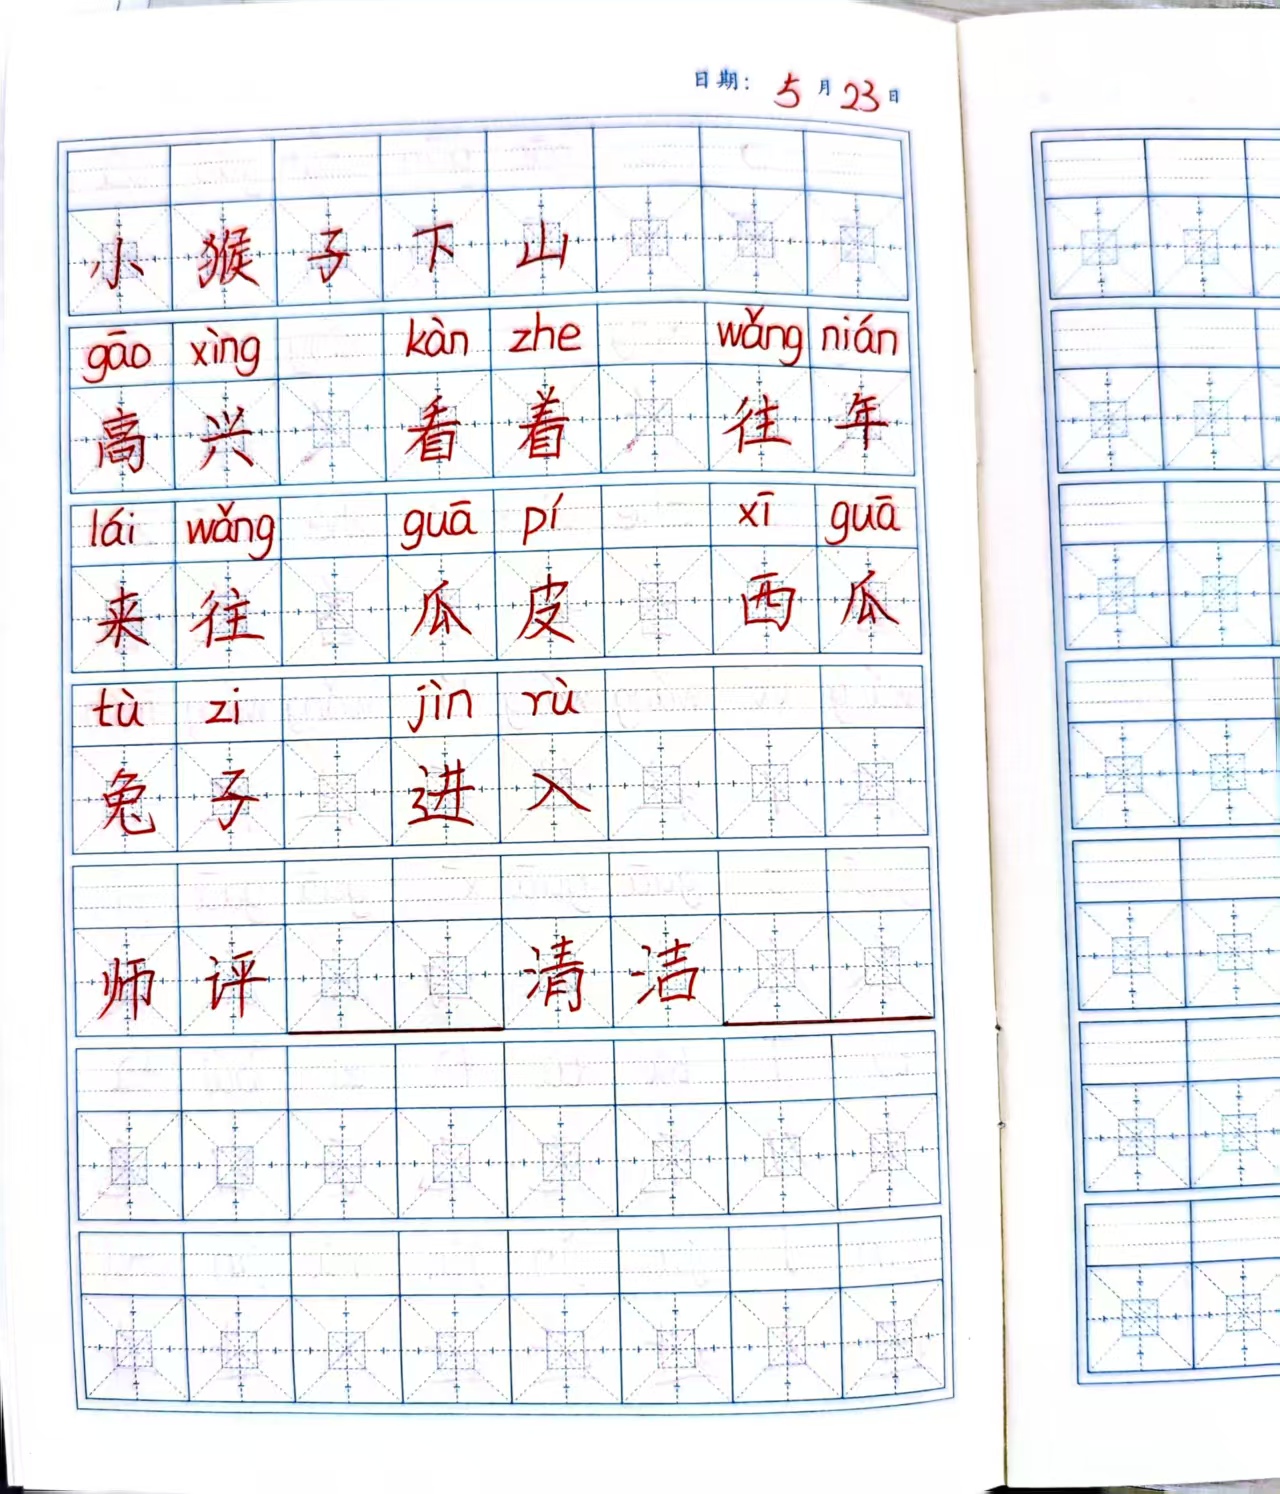 日期: 5月23日
小猴子下山
gāo xìng kàn zhe wǎng nián
高兴 看着 往年
lái wǎng guā pí xī guā
来往 瓜皮 西瓜
tù zi jìn rù
兔子 进入
师评 清洁